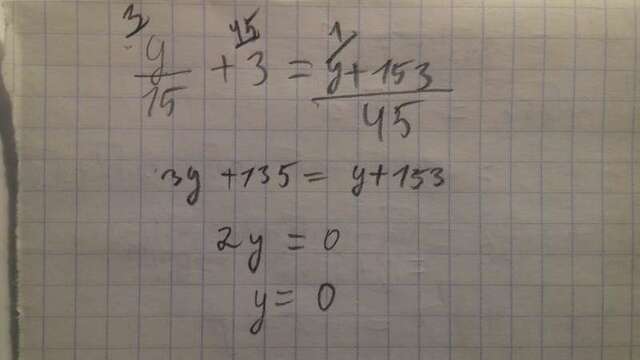 3 y/15 + 3 45 = y+153 1 / 45
3y + 135 = y+153
2y = 0
y = 0